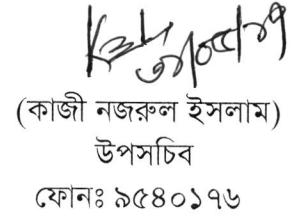 (কাজী নজরুল ইসলাম)
উপসচিব
ফোনঃ ৯৫৪০১৭৬